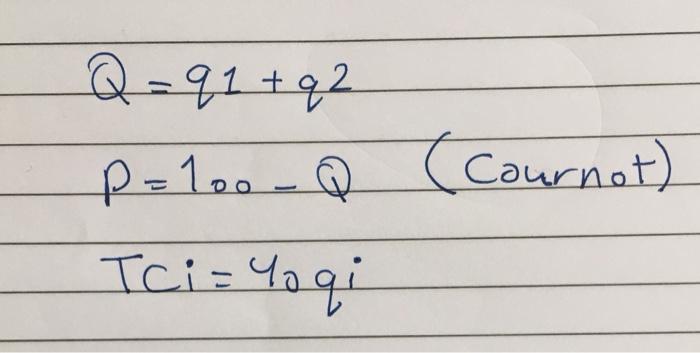 Q = q1 + q2
P = 100 - Q (Cournot)
TCi = 40qi